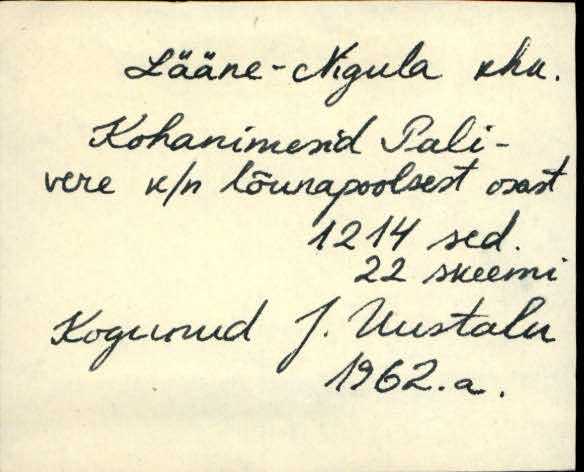 Lääne-Nigula khk.
Kohanimesid Pali-
vere k/n lõunapoolsest osast
1214 sed.
22 skeemi
Kogunud J. Uustalu
1962.a.